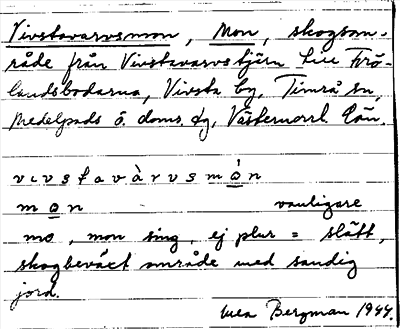 Vivstavarvsmon, Mon, skogsom-
råde från Vivstavarvstjärn till Frö-
landsbodarna, Vivsta by, Timrå sn,
Medelpads ö. doms.dg, Västernorrl. län.
vivstavàrvsmón
mon vanligare
mo, mon sing, ej plur = slätt,
skogbeväxt område med sandig
jord.
Bergman 1944.